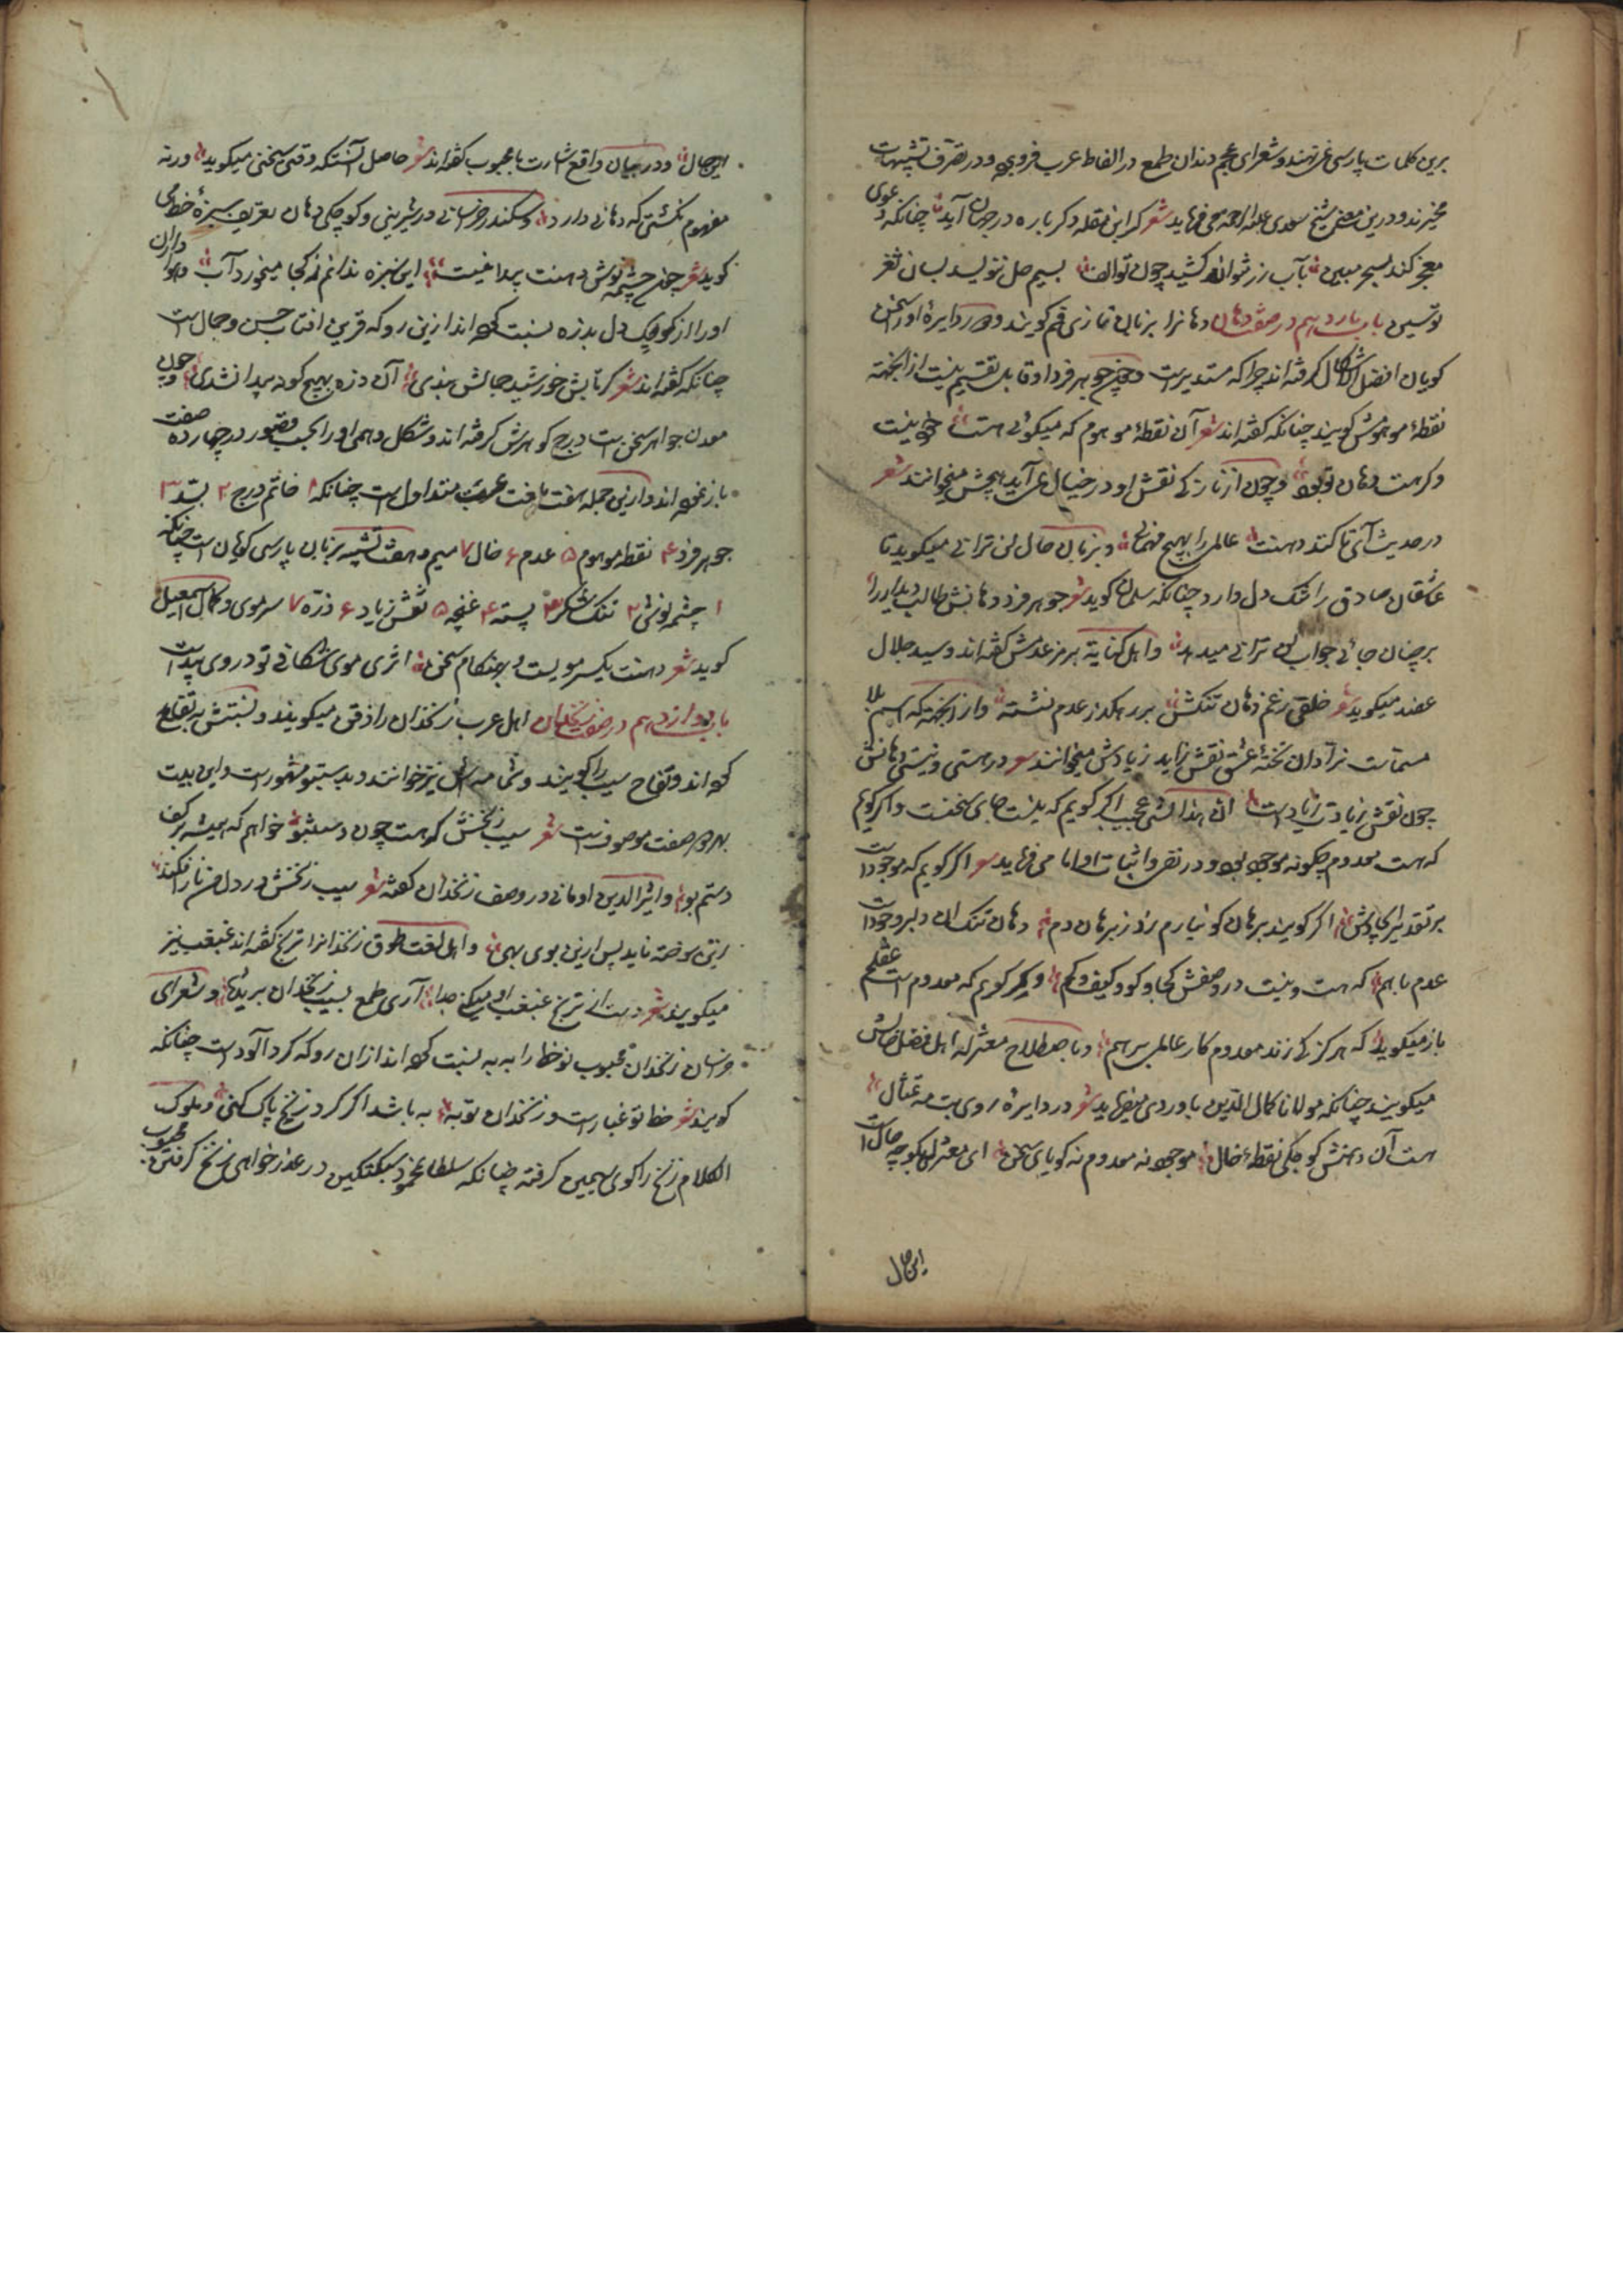 برین کلمات پارسی عرضهند و شعرای عجم دندان طمع در الفاظ عرب فروبرده و در تصرف تشبیهات
میخرند و درین معنی شیخ سعدی علیه الرحمه می فرماید شعر گر ابن مقله دگر باره در جهان آید چنانکه دعوی
معجز کند بسحر مبین بآب زر نتواند کشید چون تو الف بسیم حل ننویسد بسان ثغر
تو سین باب یازدهم در صفت دهان دهانرا بزبان تازی فم گویند و در دایرهٔ او سخن
گویان افضل الاشکال گرفته اند چرا که مستدیرست و چون جوهر فرد او قابل تقسیم نیست ازانجهته
نقطهٔ موهومش گویند چنانکه گفته اند شعر آن نقطهٔ موهوم که میگوئی هست خود نیست
وگر هست دهان تو بود و چون از نازکی نقش او در خیال نمی آید هیچش میخوانند شعر
در حدیث آئی تا کند دهنت عالمی را بهیچ مهمانی و بزبان حال لن ترانی میگوید تا
عاشقان صادق را تنگ دل دارد چنانکه سلمان گوید شعر جوهر فرد دهانش طالب دیدار را
بر چنان جائی جواب لن ترانی میدهد و اهل کنایة برمز عدمش گفته اند و سید جلال
عضد میگوید شعر خلقی ز غم دهان تنگش بر رهگذر عدم نشسته و از آنجهته که اسم بلا
مسماست نرادان تختهٔ عشق نقش زاید زیادش میخوانند شعر در هستی و نیستی دهانش
چون نقش زیادت زیادست ان هذا لشئ عجیب اگر گویم که نیست جای سخنست و اگر گویم
که هست معدوم چگونه موجود بود و در نفی و اثبات او امامی فرماید شعر اگر گویم که موجودست
بر تقدیر ایجادش اگر گویند برهان گو نیارم زد ز برهان دم دهان تنگ آن دلبر وجودست
عدم با هم که هست و نیست در وصفش کجا و کو و کیف و کم و گر گویم که معدوم است عقلم
باز میگوید که هرگز کی زند معدوم کار عالمی بر هم و باصطلاح معتزله اهل فضل حالش
میگویند چنانکه مولانا کمال الدین باوردی میفرماید شعر در دایرهٔ روی بت مه تمثال
هست آن دهنش کوچکی نقطهٔ خال موجود نه معدوم نه گویای سخن ای معتزلی بگو چه حالست
این حال
این حال و در بیان واقع اشارت با محبوب گفته اند شعر حاصل آنستکه وقتی سخنی میگوید ورنه
مفهوم نگشتی که دهانی دارد و سکندر خراسانی در شیرینی و کوچکی دهان تعریف سبزهٔ خط می
گوید شعر چون چشمه نوش دهنت پیدا نیست این سبزه ندانم ز کجا میخورد آب و هوا داران
او را از کوچک دل بذره نسبت کرده اند ازین رو که قرین افتاب حسن و جمالست
چنانکه گفته اند شعر گر تابش خورشید جمالش نبدی آن ذره بهیچ گونه پیدا نشدی و چون
معدن جواهر سخن است درج گوهرش گرفته اند و شکل وهمی او را بحسب تصور در چهارده صفت
باز نموده اند و ازین جمله هفت بلغت عرب متداول است چنانکه ۱ خاتم درج ۲ بسد ۳
جوهر فرد ۴ نقطه موهوم ۵ عدم ۶ خال ۷ میم و هفت تشبیه بزبان پارسی گویان است چنانکه
۱ چشمه نوش ۲ تنگ شکر ۳ پسته ۴ غنچه ۵ نقش زیاد ۶ ذره ۷ سر موی و کمال اسمعیل
گوید شعر دهنت یکسر مویست و بهنگام سخن اثری موی شکافی تو در وی پیداست
باب دوازدهم در صفت زنخدان اهل عرب زنخدان را ذقن میگویند و نسبتش به تفاح
کرده اند و تفاح سیب را گویند و شمامه اش نیز خوانند و بدستنبو مشهورست و این بیت
بهر دو صفت موصوفست شعر سیب زنخش که هست چون دستنبو خواهم که همیشه بر کف
دستم بو و اثیر الدین اومانی در وصف زنخدان گفته شعر سیب زنخش در دل من نار افکند
زین سوخته ناید پس ازین بوی بهی و اهل لغت طوق زنخدانرا ترنج گفته اند غبغب نیز
میگویند شعر دست از ترنج غبغب او میکنی جدا آری طمع بسیب زنخدان بریدنی و شعرای
خراسان زنخدان محبوب نوخط را به به نسبت کرده اند ازان رو که گرد آلودست چنانکه
گویند شعر خط تو غبارست و زنخدان تو به به باشد اگر گرد زنخ پاک کنی و ملوک
الکلام زنخ را گوی سیمین گرفته چنانکه سلطان محمود سبکتکین در عذر خواهی زنخ گرفتن محبوب